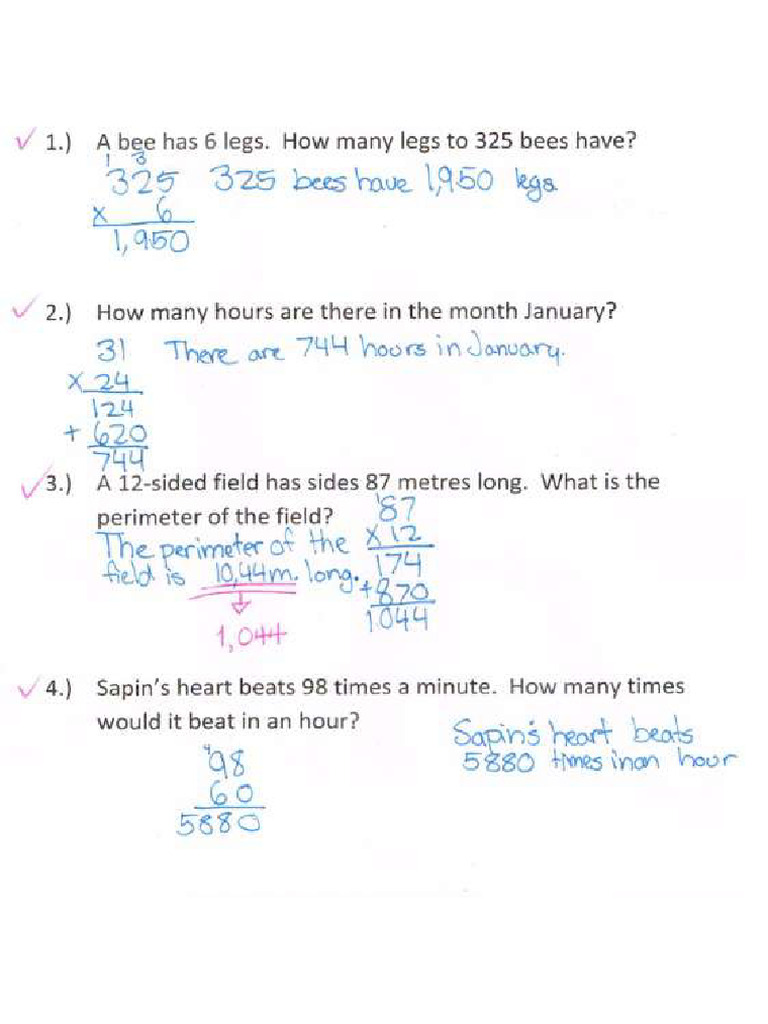 ✓ 1.) A bee has 6 legs. How many legs to 325 bees have?
1 3
325 325 bees have 1,950 legs
x 6
1,950
✓ 2.) How many hours are there in the month January?
31 There are 744 hours in January.
x 24
124
+ 620
744
✓ 3.) A 12-sided field has sides 87 metres long. What is the
perimeter of the field? 187
The perimeter of the x 12
field is 10,44m. long. 174
+870
1,044 1044
✓ 4.) Sapin's heart beats 98 times a minute. How many times
would it beat in an hour?
Sapin's heart beats
498 5880 times in an hour
60
5880